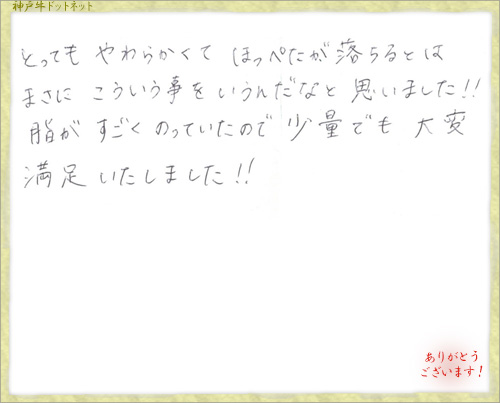 神戸牛ドットネット
とっても やわらかくて ほっぺたが落ちるとは
まさに こういう事を いうんだなと 思いました!!
脂が すごく のっていたので 少量でも 大変
満足 いたしました!!
ありがとう
ございます!